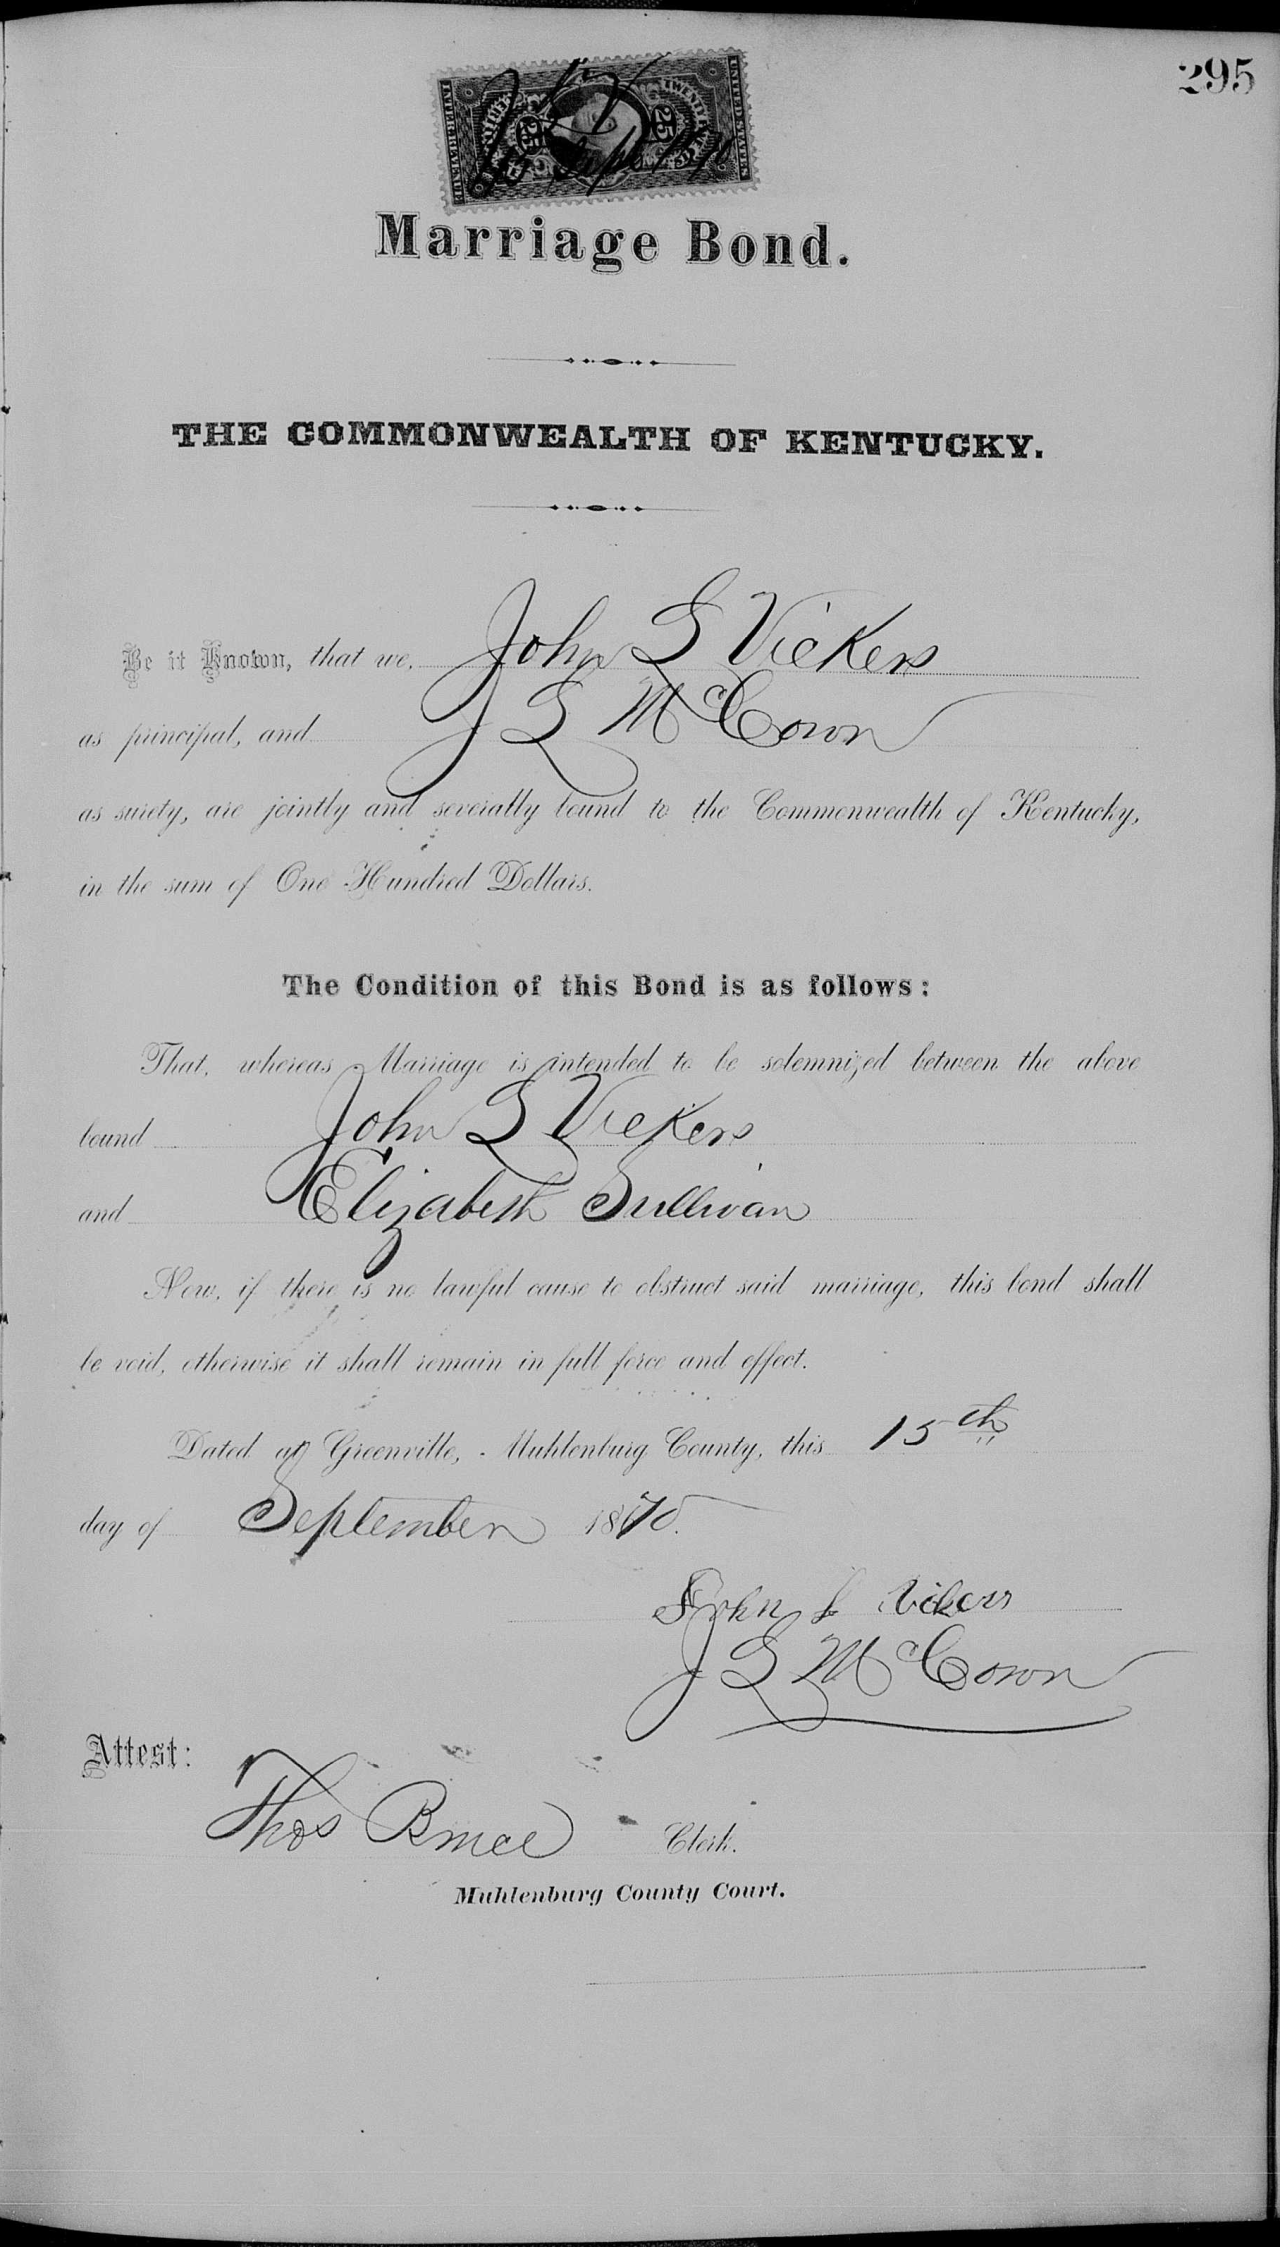 295
UNITED STATES
TWENTY FIVE CTS
25
25
INTER. REV.
Sept 1870
Marriage Bond.
THE COMMONWEALTH OF KENTUCKY.
Be it Known, that we, John S Vickers
as principal, and J S McCown
as surety, are jointly and severally bound to the Commonwealth of Kentucky,
in the sum of One Hundred Dollars.
The Condition of this Bond is as follows:
That, whereas Marriage is intended to be solemnized between the above
bound John S Vickers
and Elizabeth Sullivan
Now, if there is no lawful cause to obstruct said marriage, this bond shall
be void, otherwise it shall remain in full force and effect.
Dated at Greenville, Muhlenburg County, this 15th
day of September 1870.
John S Vickers
J S McCown
Attest:
Thos Bruce Clerk.
Muhlenburg County Court.